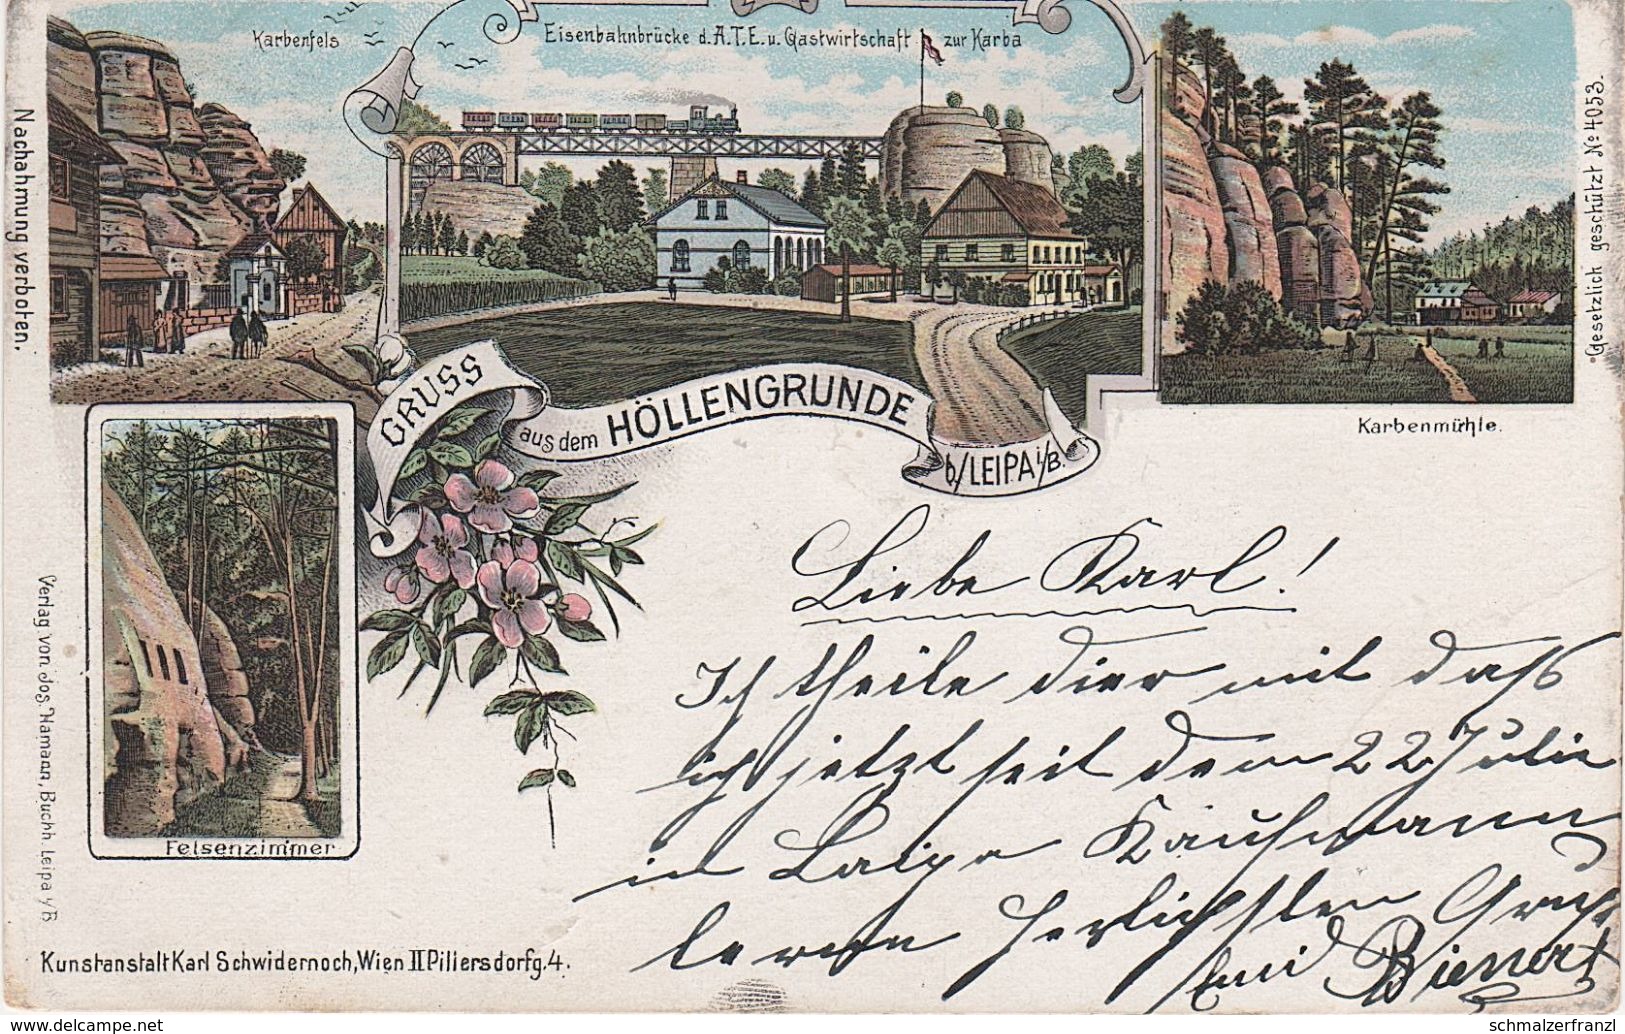 Karbenfels
Eisenbahnbrücke d. A.T.E. u. Gastwirtschaft zur Karba
Nachahmung verboten.
Gesetzlich geschützt No: 4053.
Karbenmühle.
GRUSS
aus dem HÖLLENGRUNDE
b/LEIPA i/B.
Felsenzimmer
Verlag von Jos. Hamann, Buchh. Leipa i/B
Kunstanstalt Karl Schwidernoch, Wien II Pillersdorfg. 4.
Liebe Karl!
Ich theile dier mit dahs
ich jetzt seit dem 22 Julie
in Laipa Kaufmann
lerne Herlichsten Gruhs
Emid Bienert
delcampe.net
schmalzerfranzl